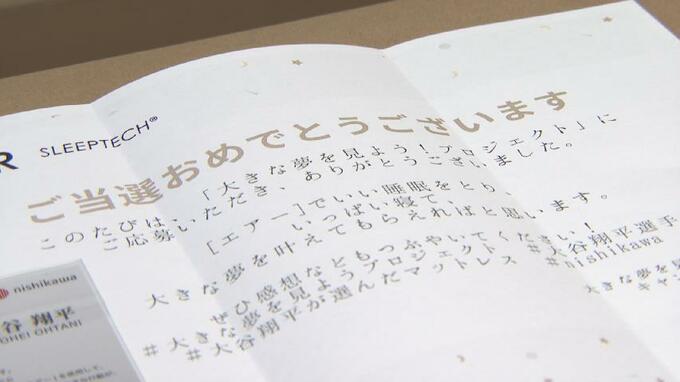 R SLEEPTECH®
ご当選おめでとうございます
このたびは、「大きな夢を見よう！プロジェクト」に
ご応募いただき、ありがとうございました。
［エアー］でいい睡眠をとり、
いっぱい寝て、
大きな夢を叶えてもらえればと思います。
ぜひ感想などもつぶやいてください！
#大きな夢を見ようプロジェクト #大谷翔平選手
#大谷翔平が選んだマットレス #nishikawa
nishikawa
谷 翔平
OHEI OHTANI
大きな夢を見
キャン